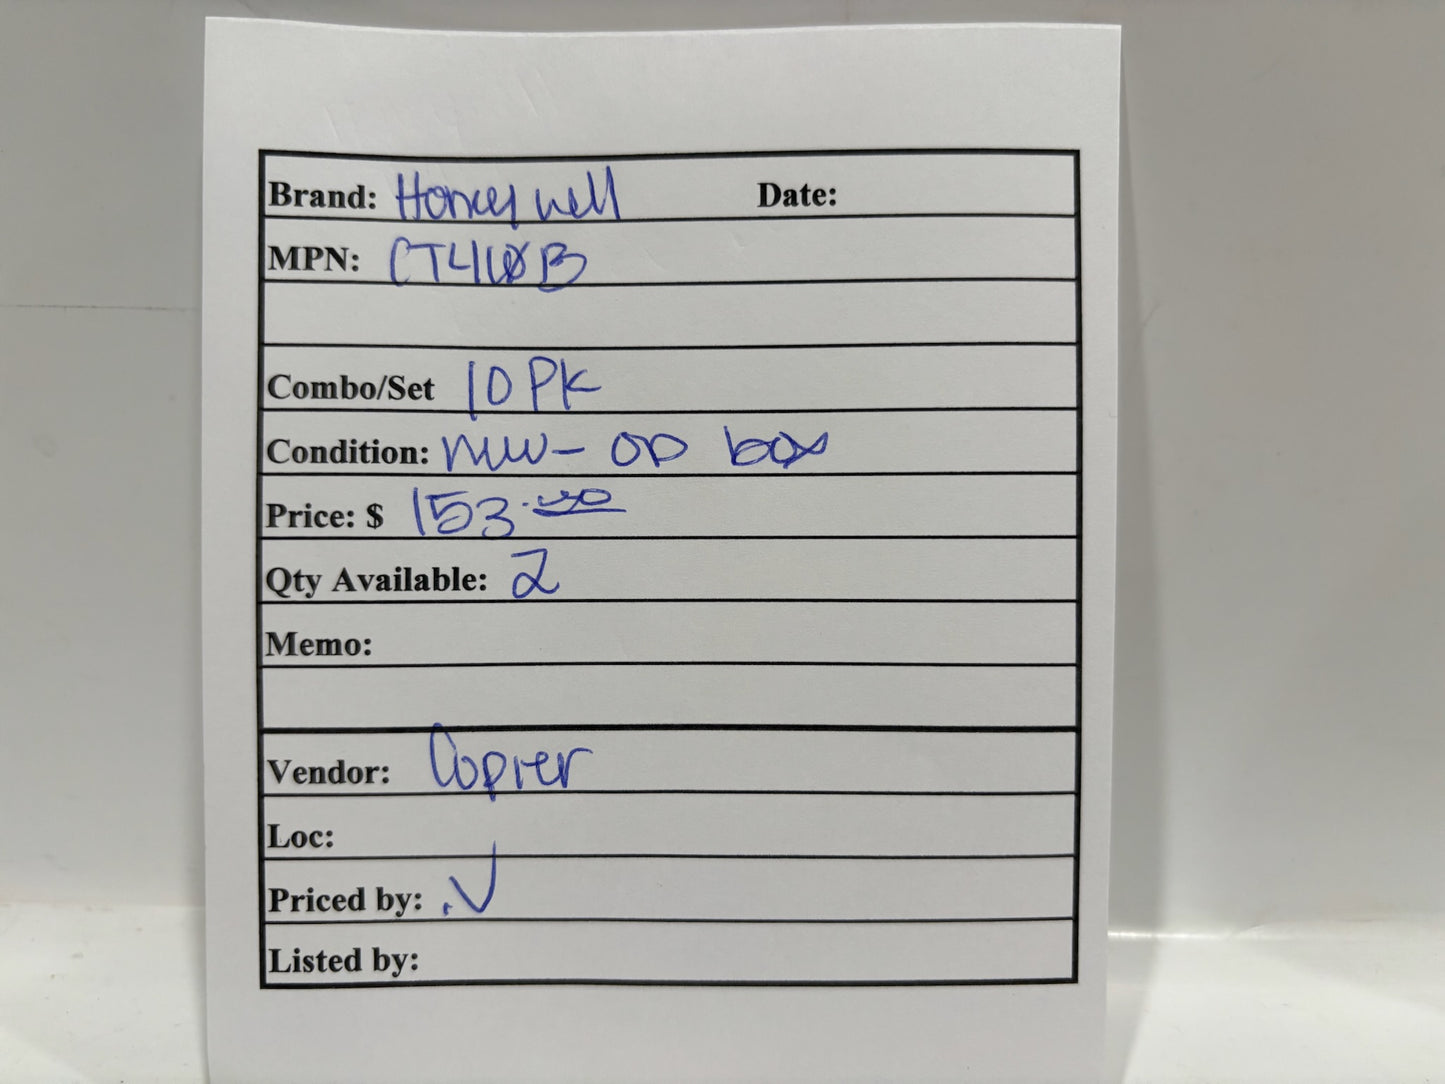 Brand: Honeywell Date:
MPN: CT410B
Combo/Set 10 PK
Condition: new - op box
Price: $ 153.00
Qty Available: 2
Memo:
Vendor: Copier
Loc:
Priced by: .V
Listed by: